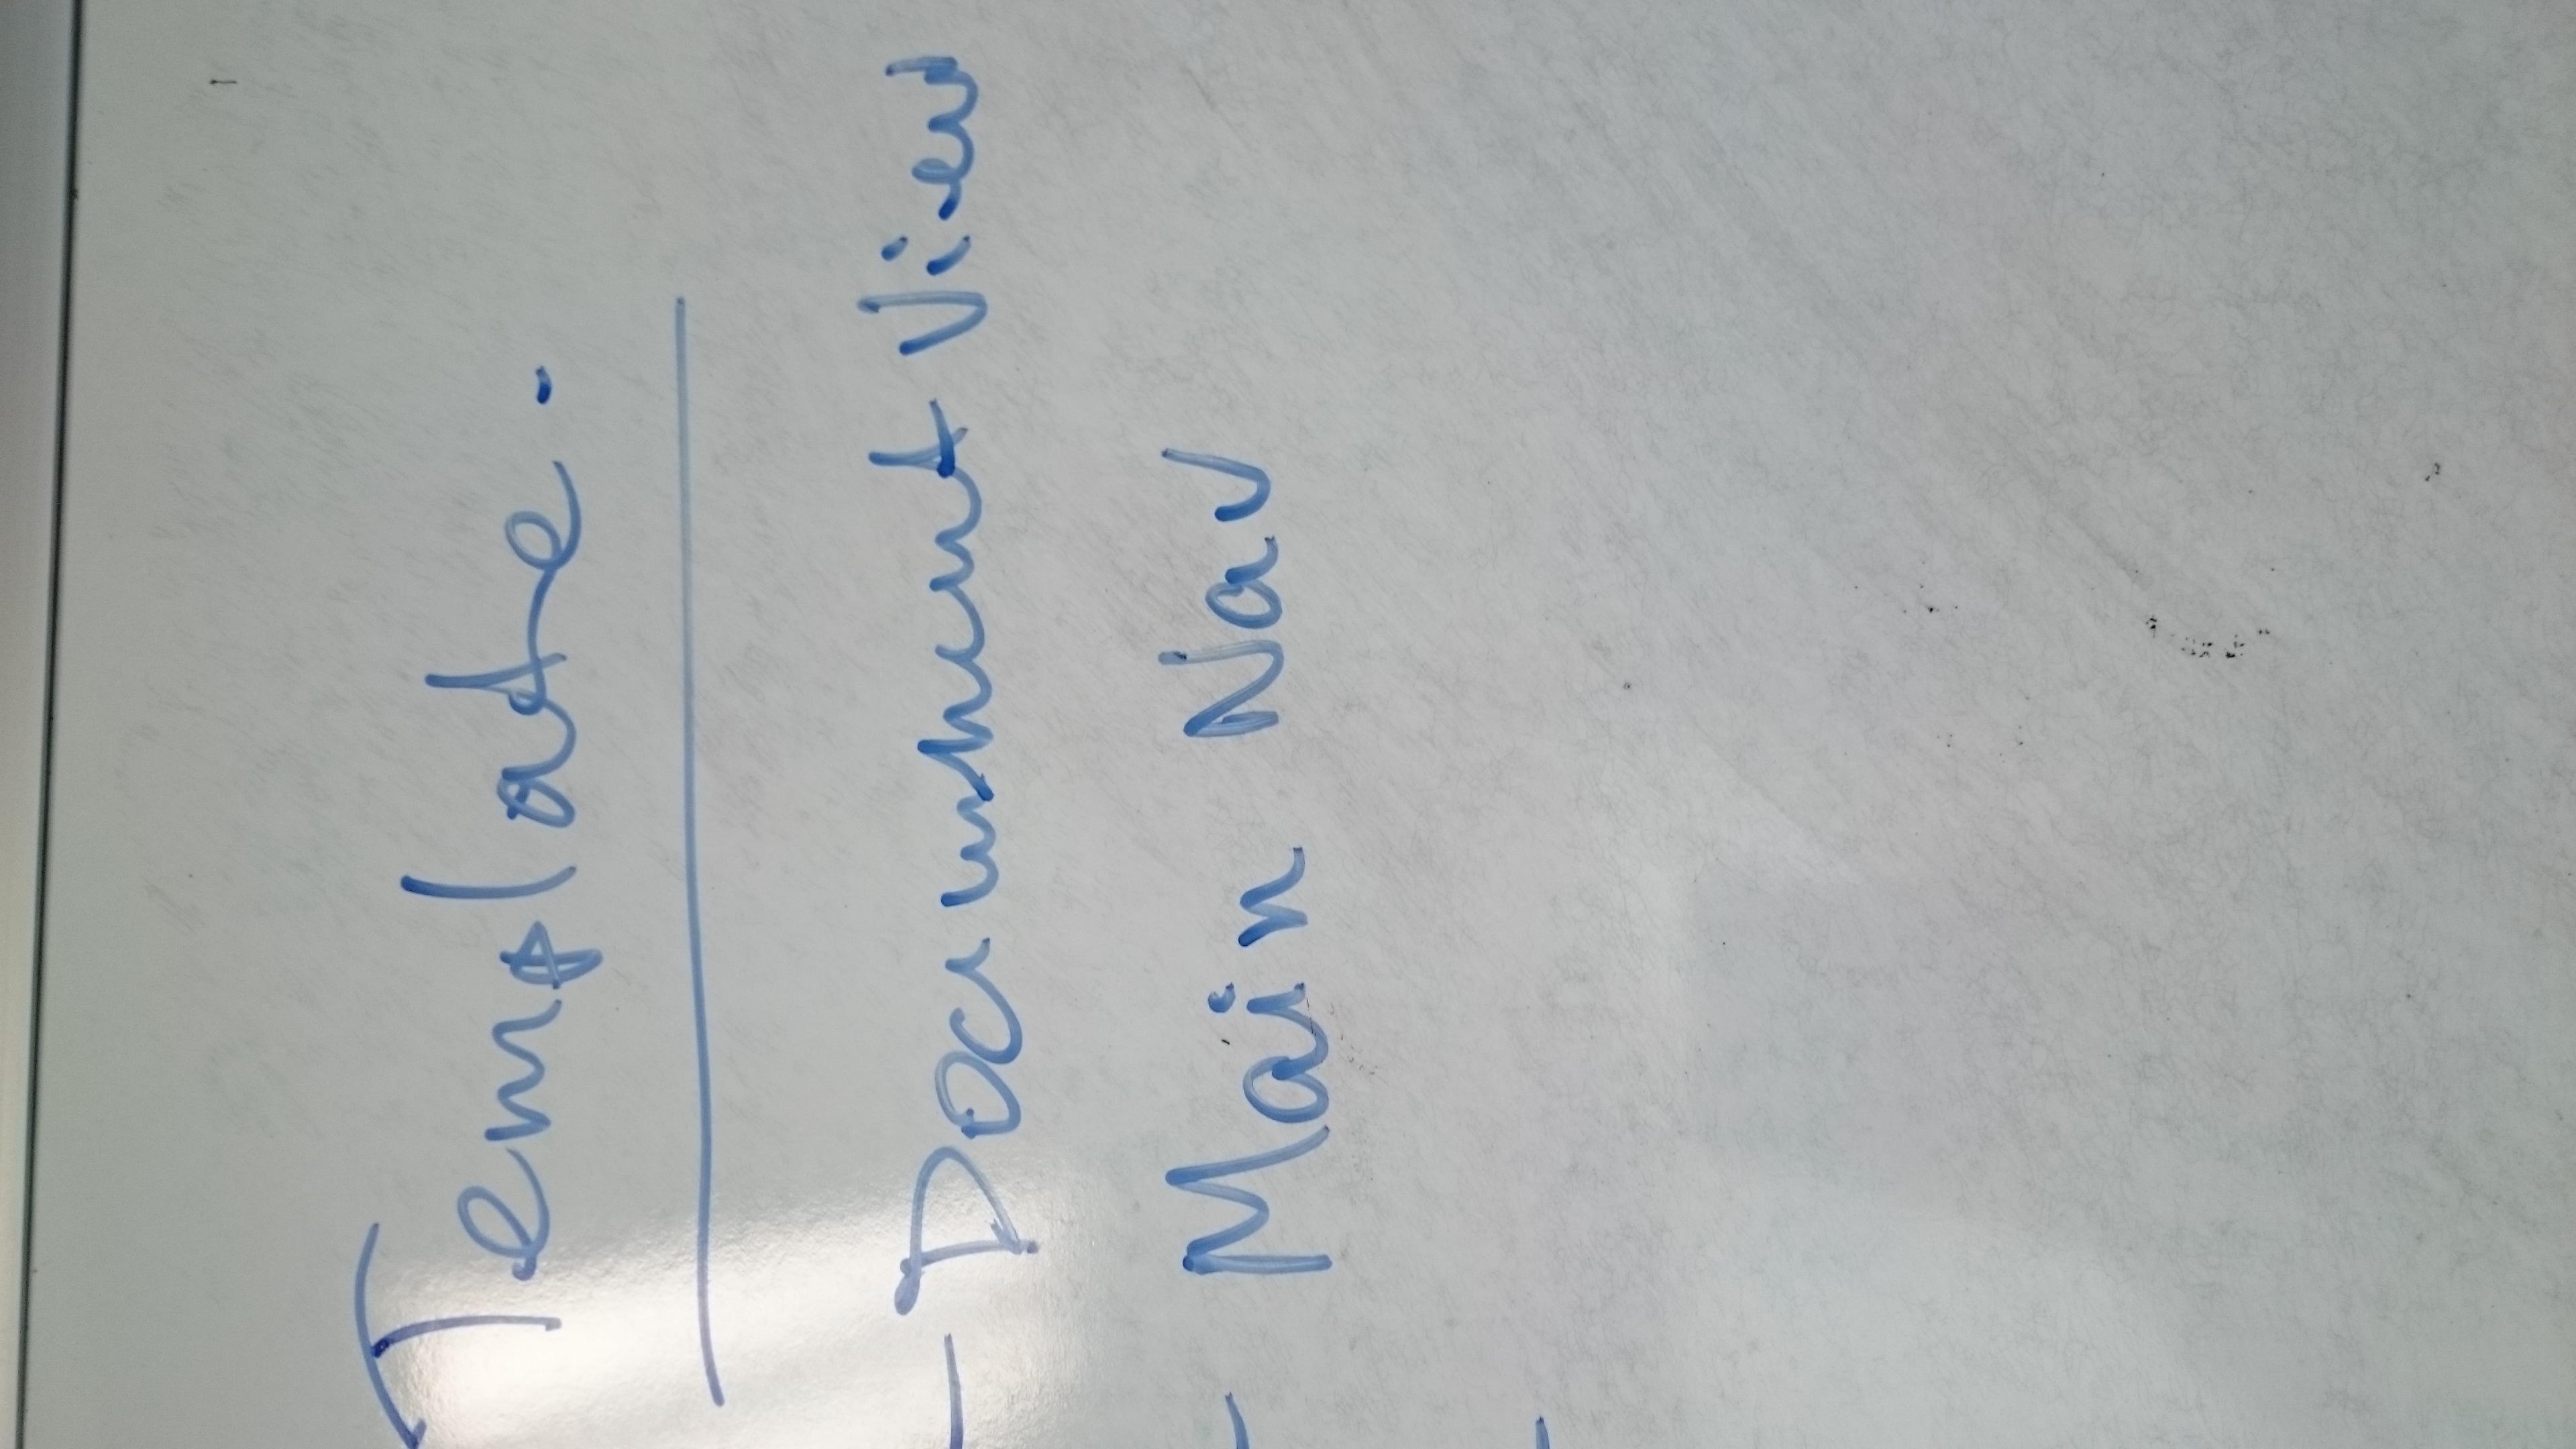 Template.
- Document View
- Main Nav
-